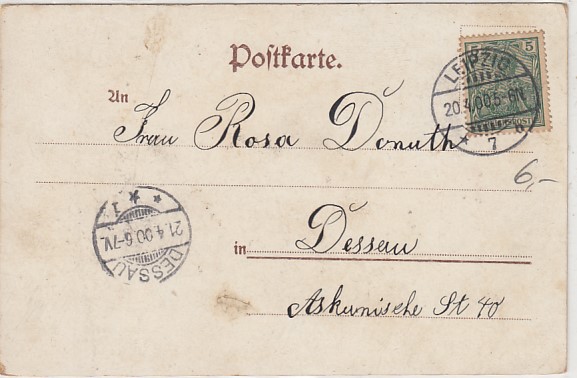 Postkarte.
5 5
LEIPZIG
20.4.00.5-6N.
* 7
An
Frau Rosa Donath
6,-
* * 1
21.4.00.6-7V.
DESSAU
in Dessau
Askanische St 40